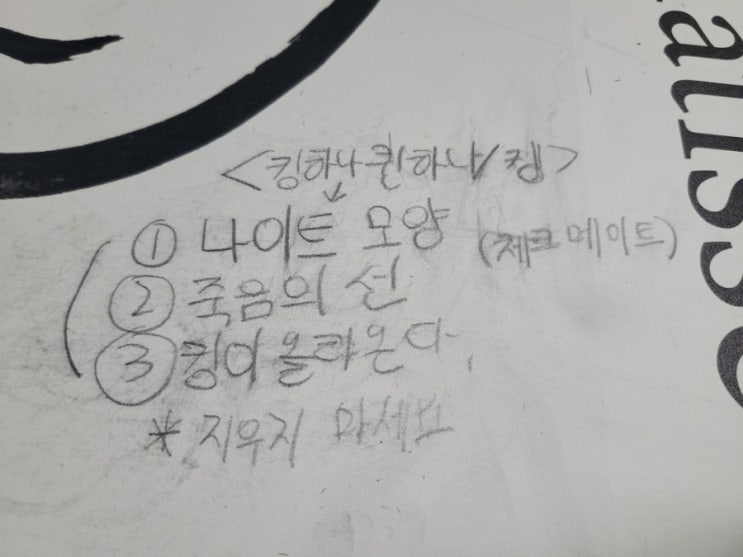 <킹하나퀸하나/킹>
① 나이트 모양 (체크메이트)
② 죽음의 선
③ 킹이 올라온다.
* 지우지 마세요